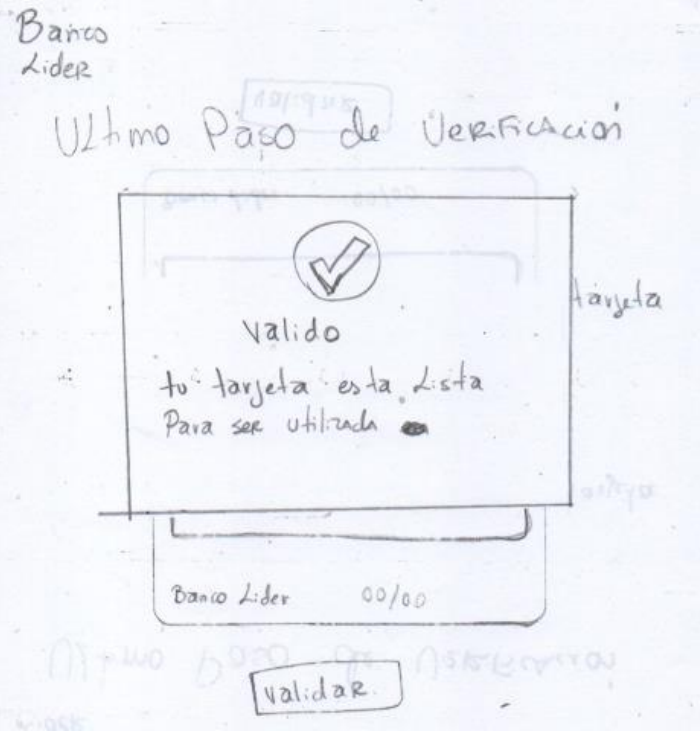 Banco
Lider
Ultimo Paso de Verificación
tarjeta
Valido
tu tarjeta esta Lista
Para ser utilizada
Banco Lider 00/00
Validar